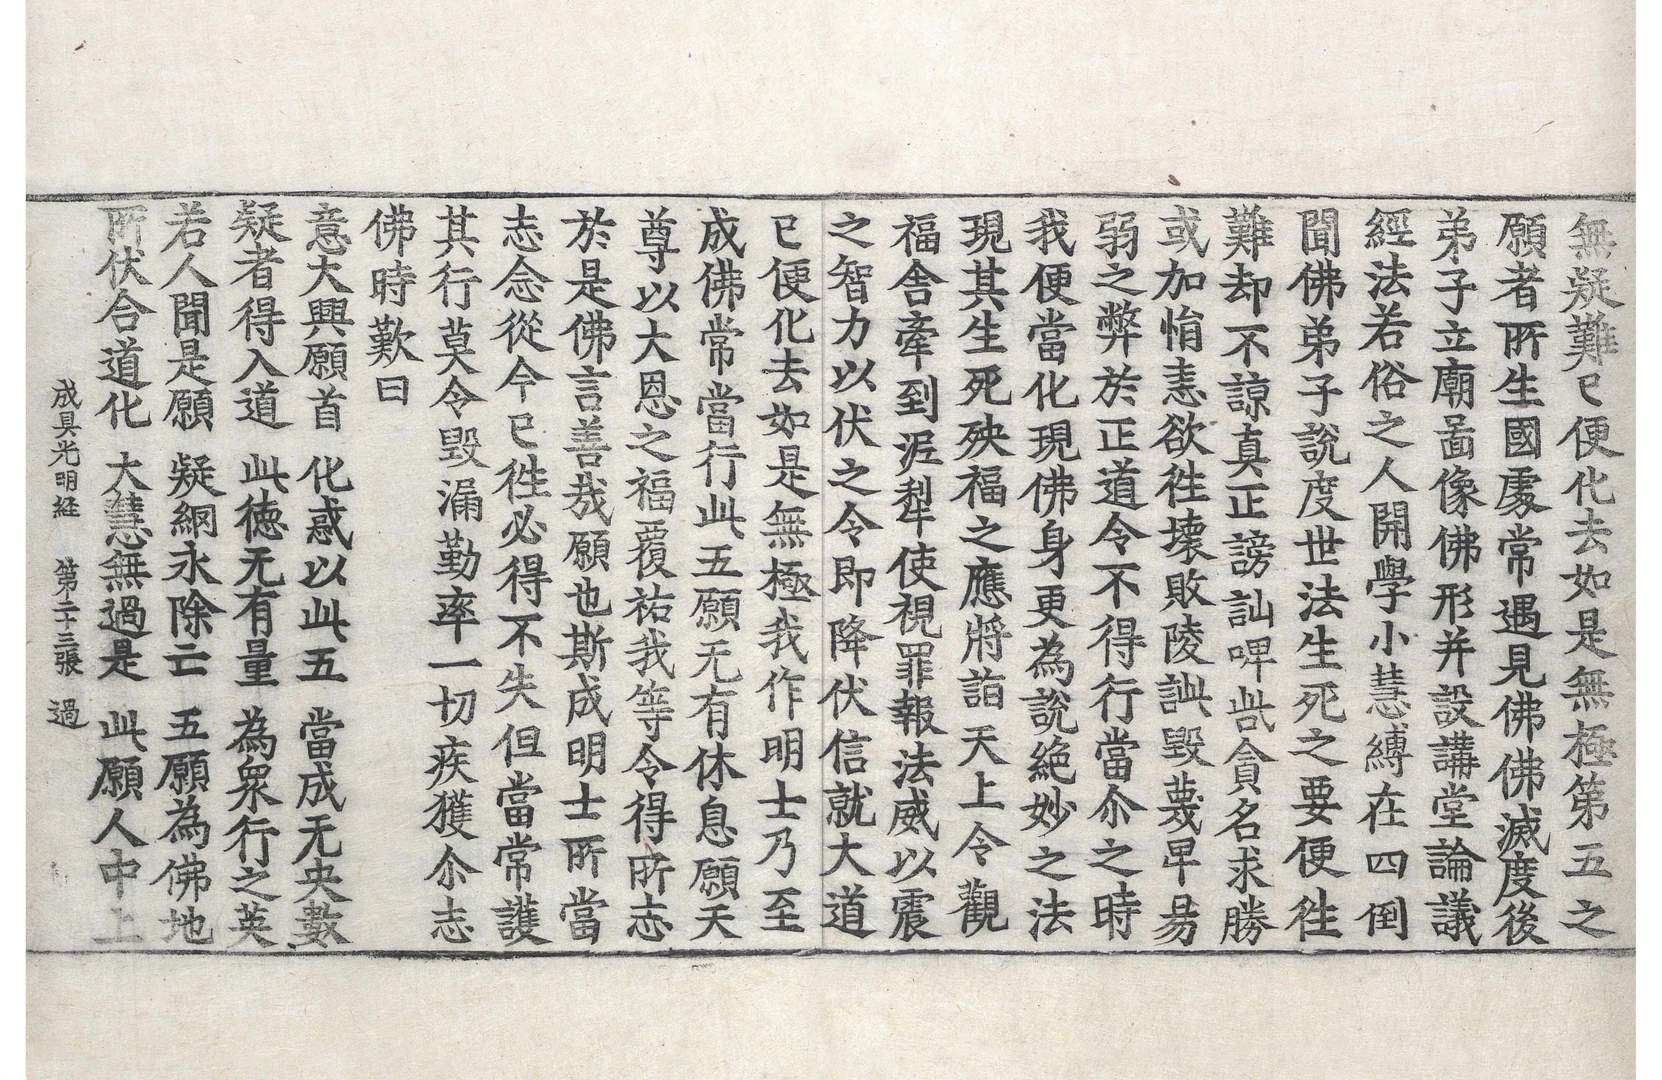 無疑難已便化去如是無極第五之
願者所生國處常遇見佛佛滅度後
弟子立廟啚像佛形并設講堂論議
經法若俗之人開學小慧縛在四倒
聞佛弟子說度世法生死之要便徃
難却不諒真正謗訕啤呰貪名求勝
或加惰恚欲徃壞敗陵訿毀蔑早昜
弱之弊於正道令不得行當尒之時
我便當化現佛身更為說絶妙之法
現其生死殃福之應將詣天上令觀
福舍牽到泥犁使視罪報法威以震
之智力以伏之令即降伏信就大道
已便化去如是無極我作明士乃至
成佛常當行此五願无有休息願天
尊以大恩之福覆祐我等令得所志
於是佛言善哉願也斯成明士所當
志念從今已徃必得不失但當常護
其行莫令毀漏勤率一切疾獲尒志
佛時歎曰
意大興願首 化惑以此五 當成无央數
疑者得入道 此德无有量 為衆行之英
若人聞是願 疑網永除亡 五願為佛地
所伏合道化 大慧無過是 此願人中上
成具光明経 第二十三張 過